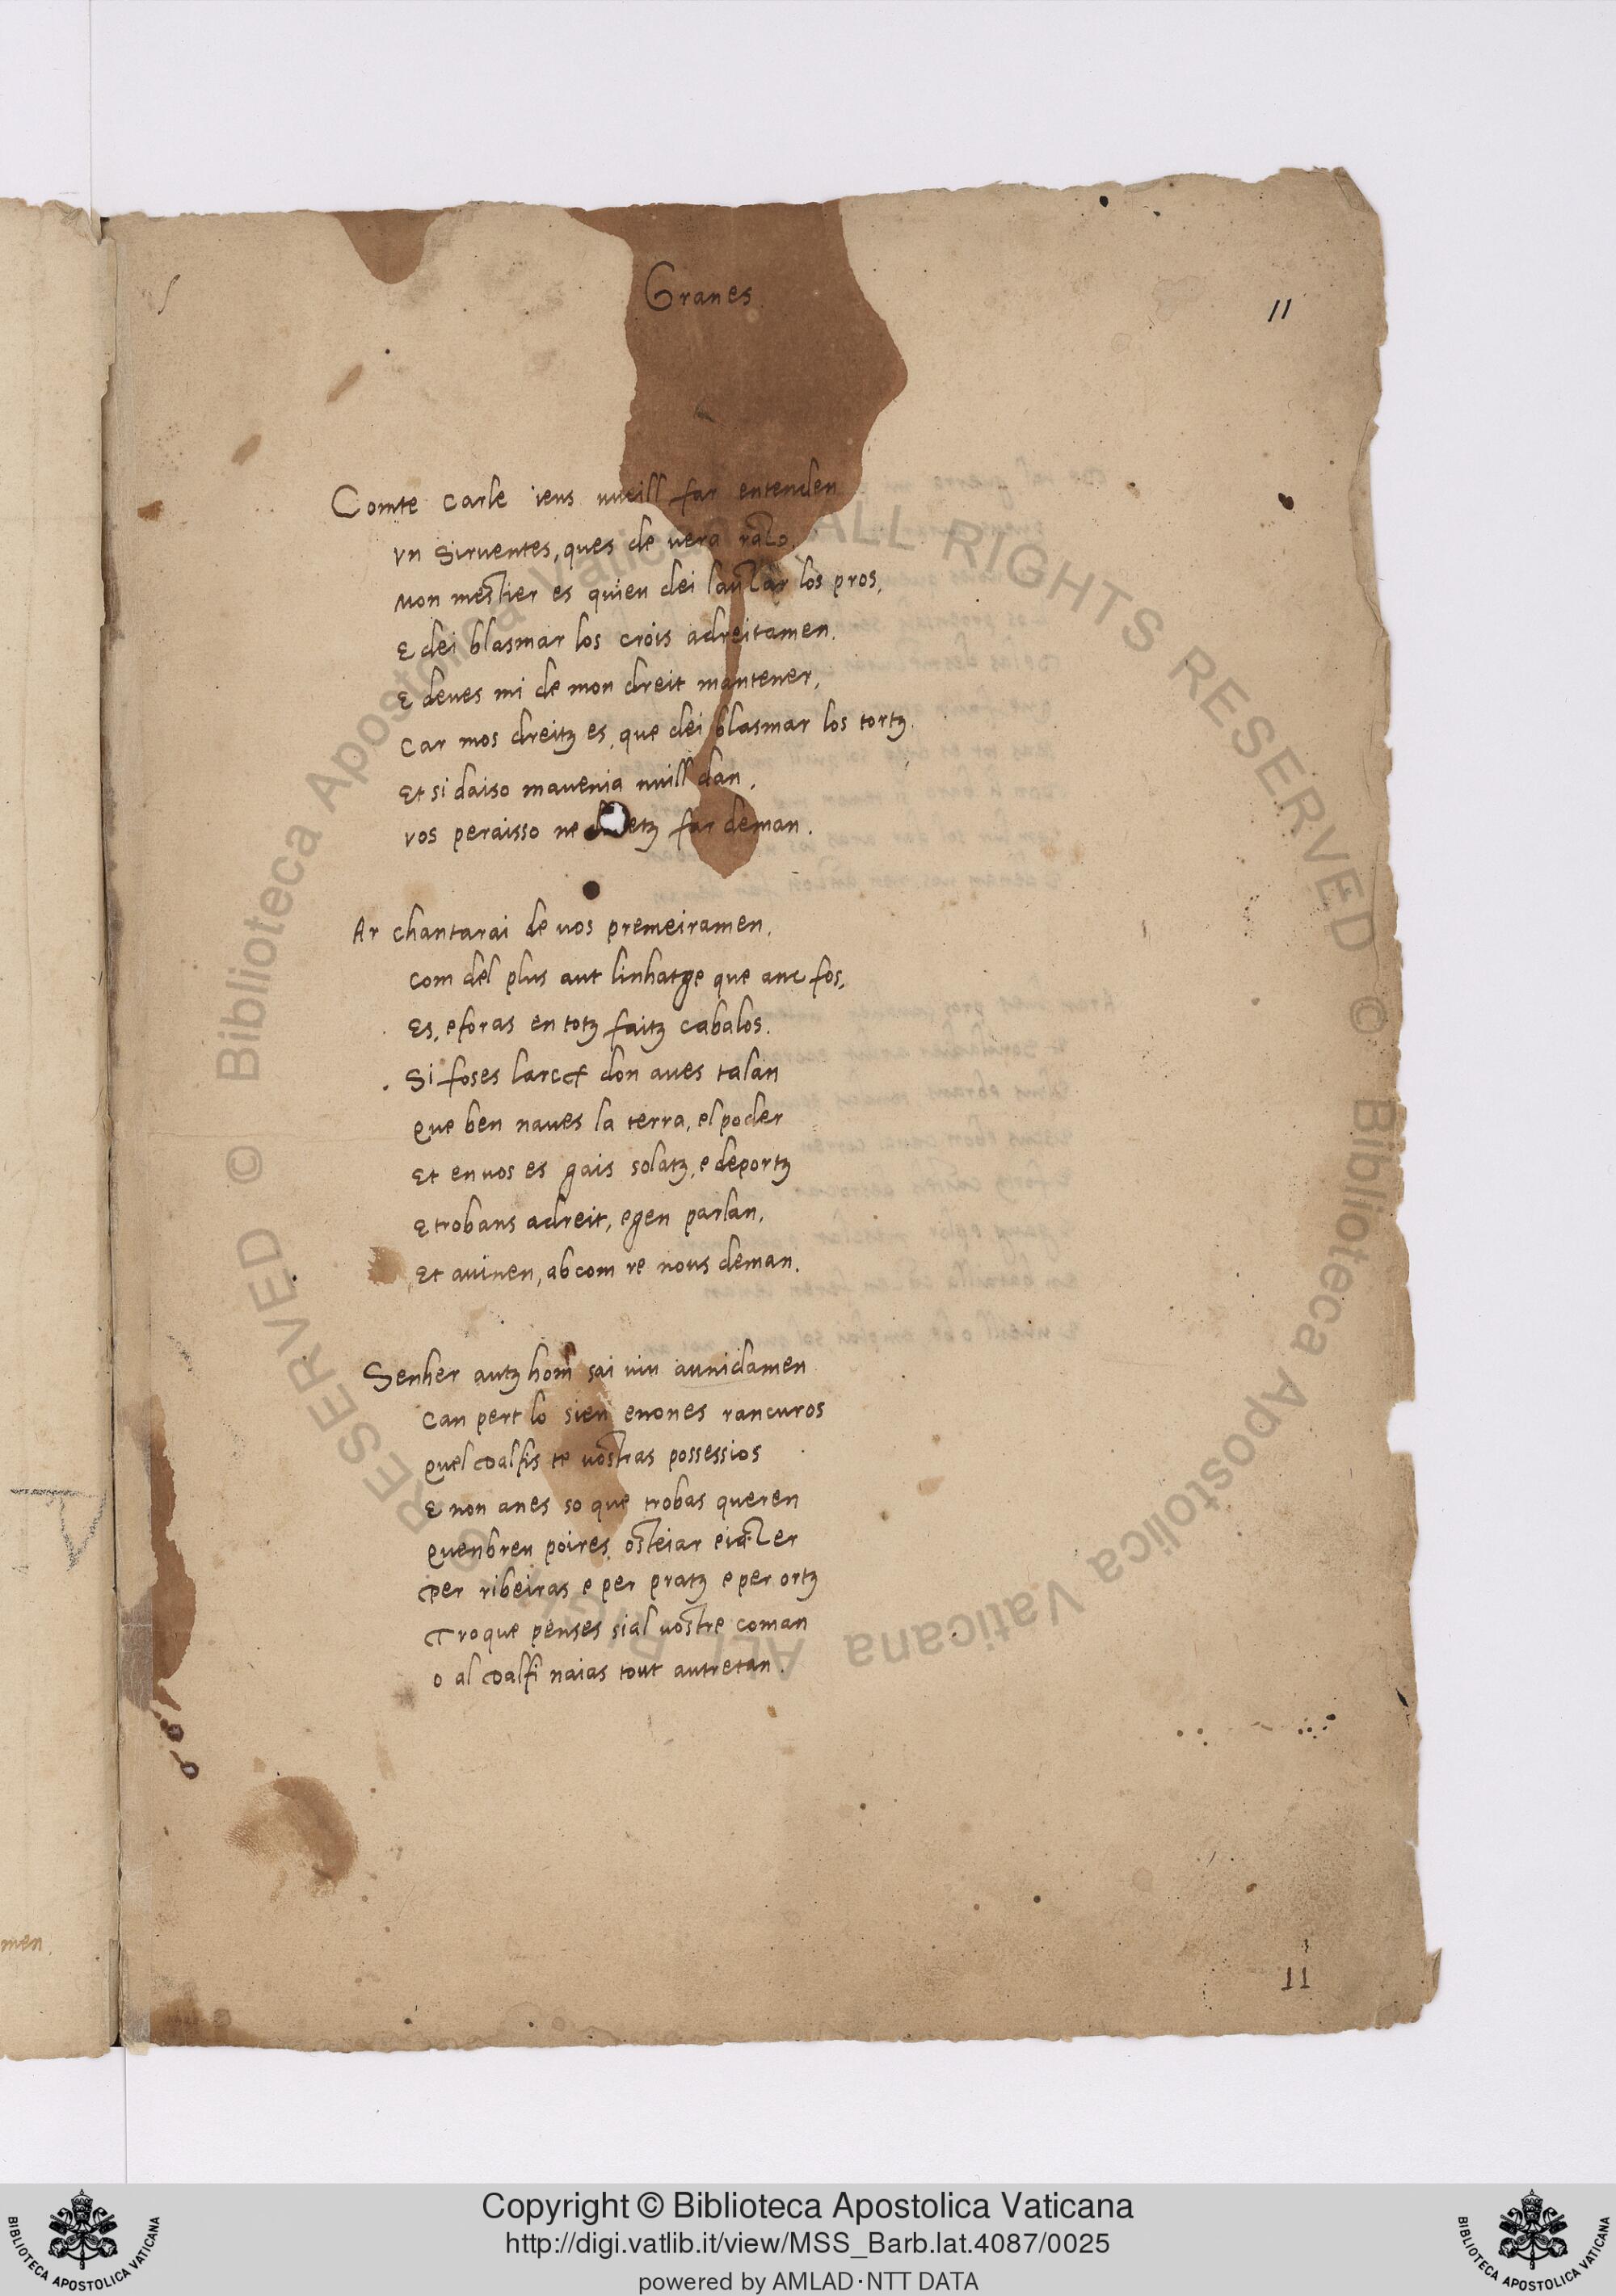 Granes.
11
Comte carle ieus uueill far entenden
vn Siruentes, ques de vera razo.
Mon mestier es quieu dei lauzar los pros,
E dei blasmar los crois adreitamen.
E deues mi de mon dreit mantener,
Car mos dreitz es, que dei blasmar los tortz.
Et si daiso mauenia nuill dan,
vos peraisso ne far deman.
Ar chantarai de uos premeiramen,
Com del plus aut linhatge que anc fos,
Es, eforas en totz faitz cabalos.
Si foses larcx don aues talan
Que ben naues la terra, el poder
Et en uos es gais solatz, e deportz
E trobans adreit, egen parlan,
Et auinen, ab com re nous deman.
Senher autz hom sai uiu aunidamen
Can pert lo sien enones rancuros
Quel Dalfis te uostras possessios
E non anes so que trobas queren
Quenbreu poires osteiar eiazer
Per ribeiras e per pratz e per ortz
Tro que penses sial uostre coman
O al Dalfi naias tout autretan.
11
men.
Copyright © Biblioteca Apostolica Vaticana
http://digi.vatlib.it/view/MSS_Barb.lat.4087/0025
powered by AMLAD·NTT DATA
BIBLIOTECA APOSTOLICA VATICANA
BIBLIOTECA APOSTOLICA VATICANA
© Biblioteca Apostolica Vaticana ALL RIGHTS RESERVED
© Biblioteca Apostolica Vaticana ALL RIGHTS RESERVED